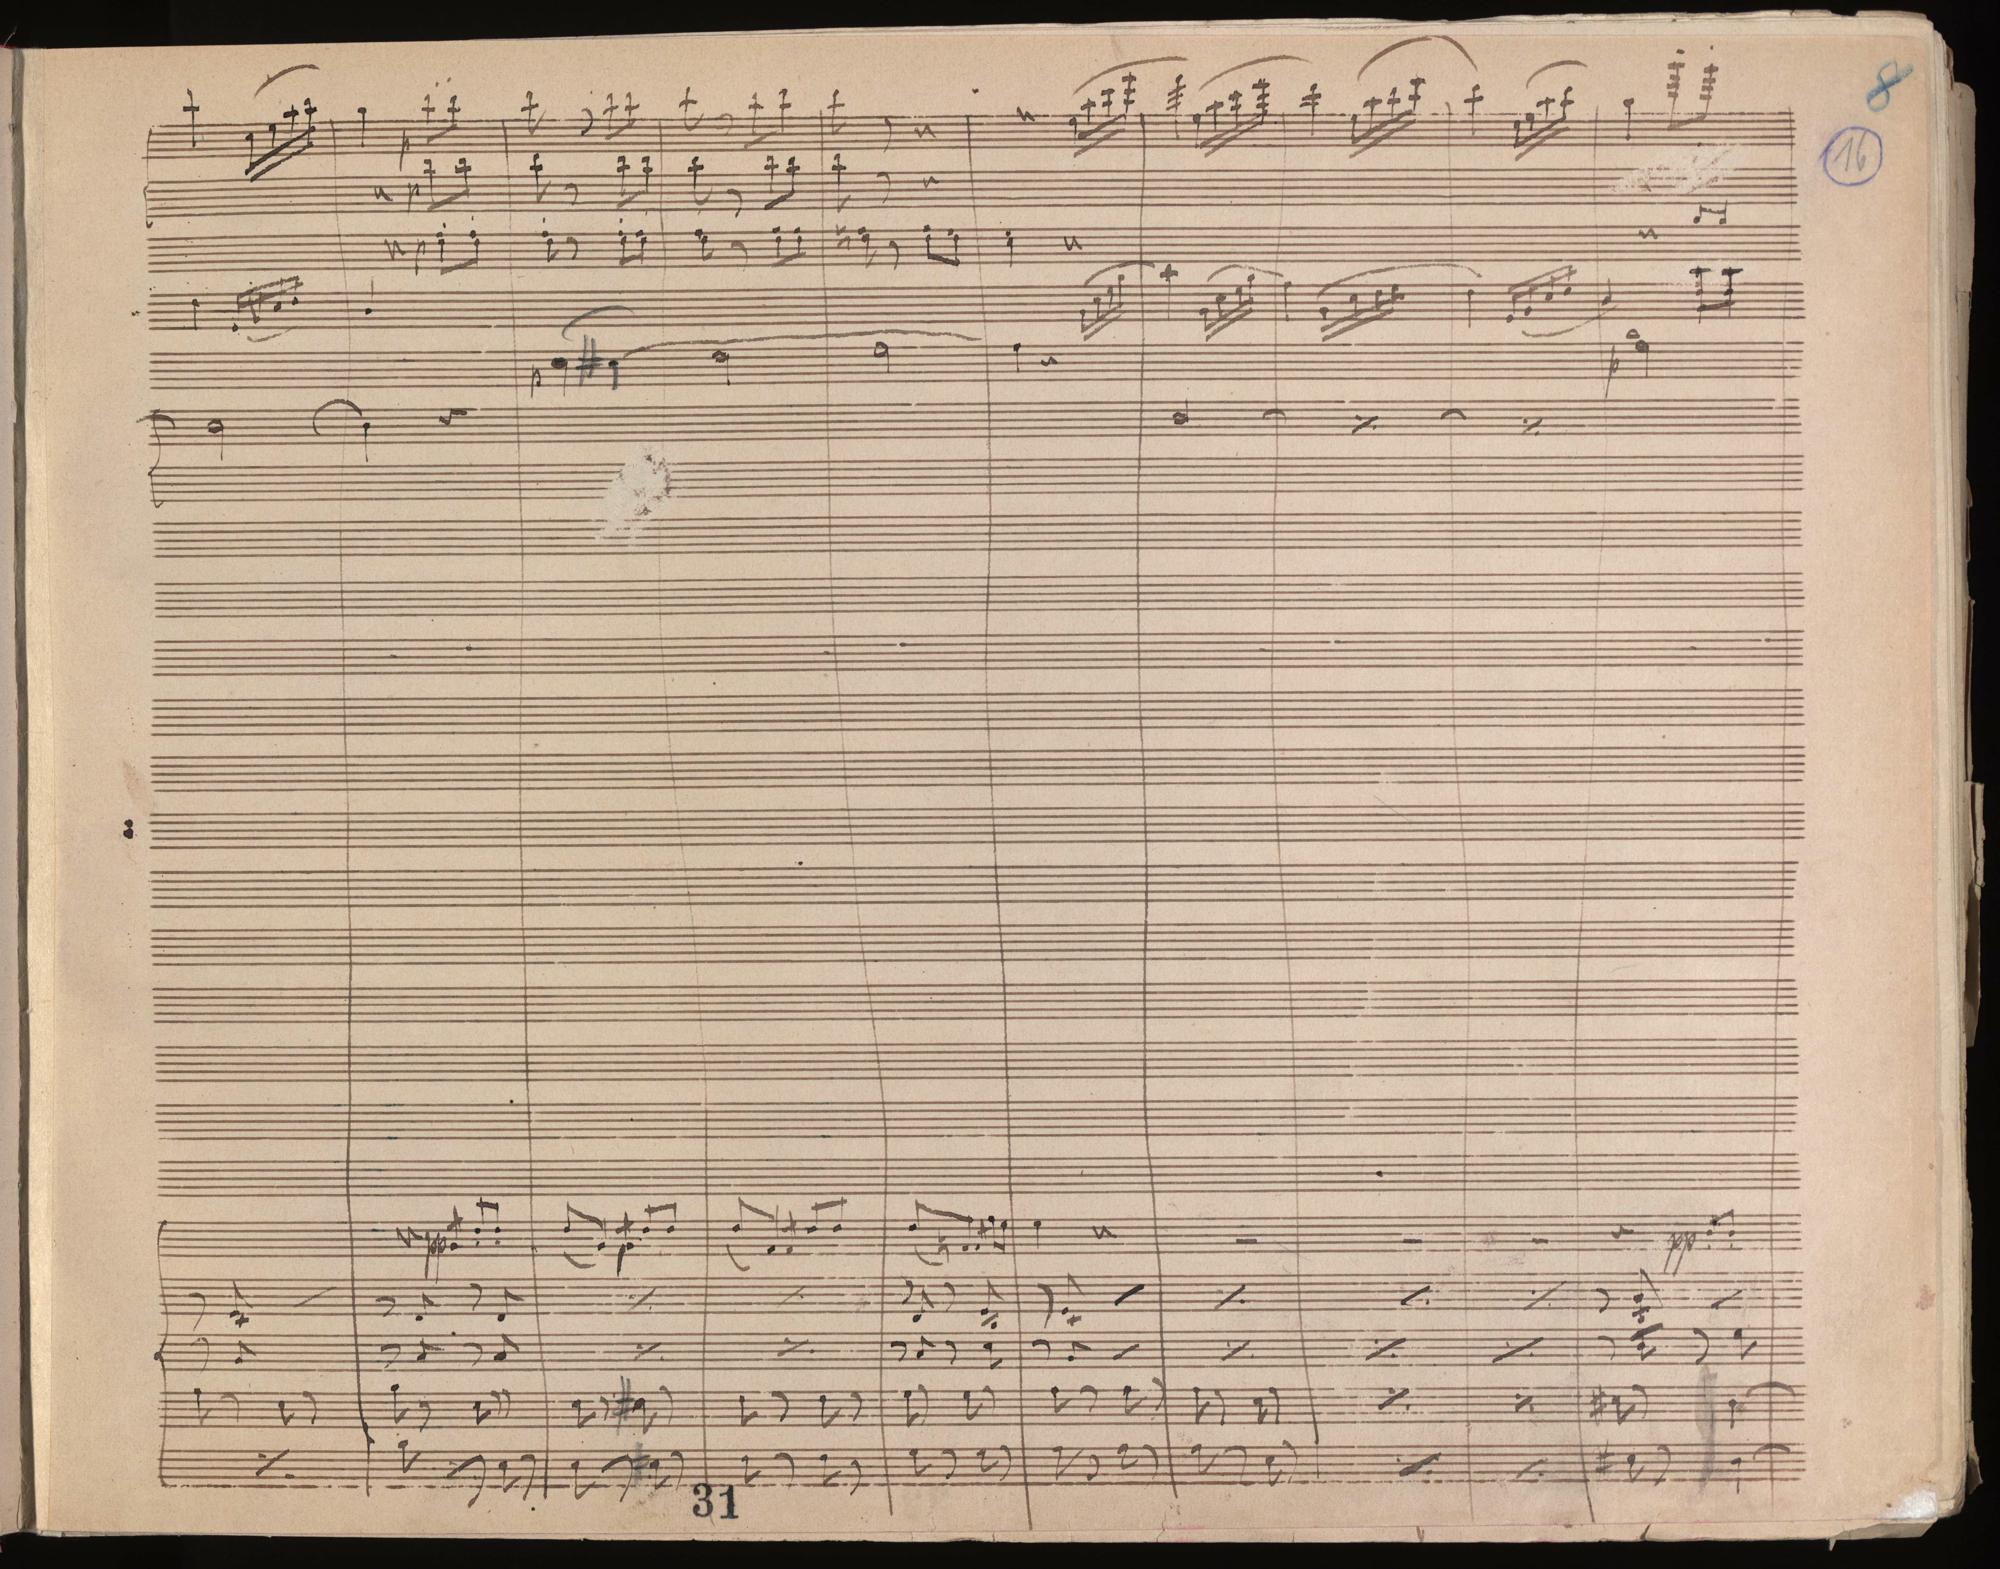 8
16
p
p
p
p
p
pp
p
pp
31